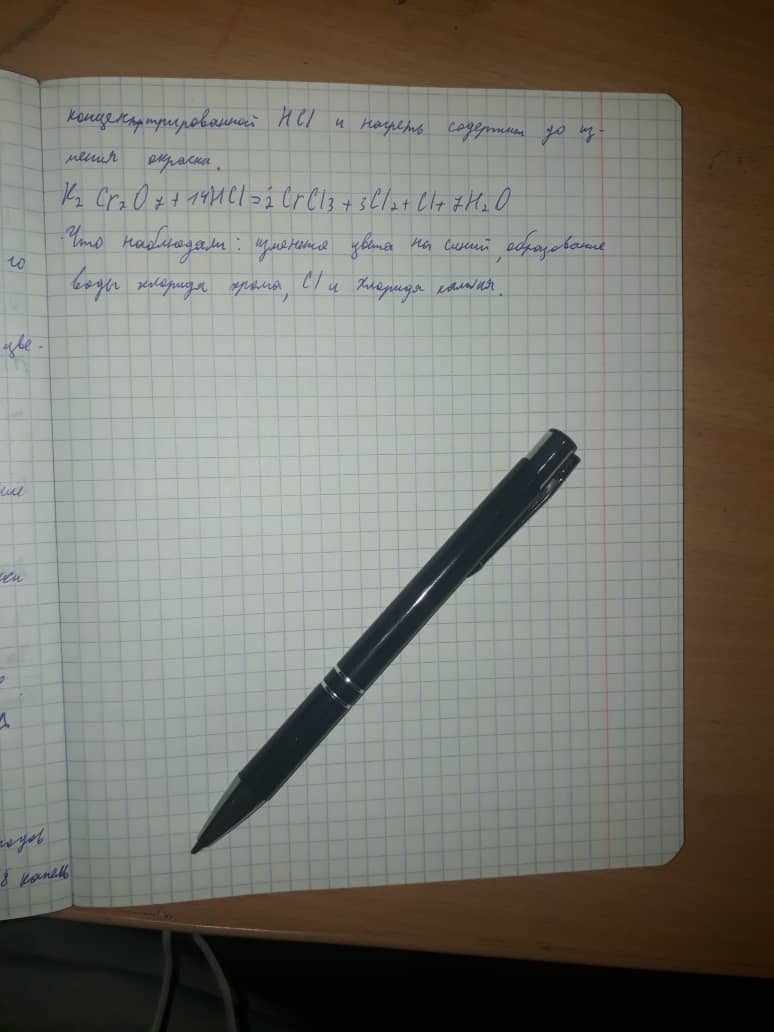 концентртрированной HCl и нагреть содержим до из-
мения окраски.
K₂ Cr₂O₇ + 14HCl = 2 CrCl₃ + 3Cl₂ + Cl + 7H₂O
Что наблюдали: изменение цвета на синий, образование
воды хлорида хрома, Cl и Хлорида калия.
го
цве-
ки
8 капель